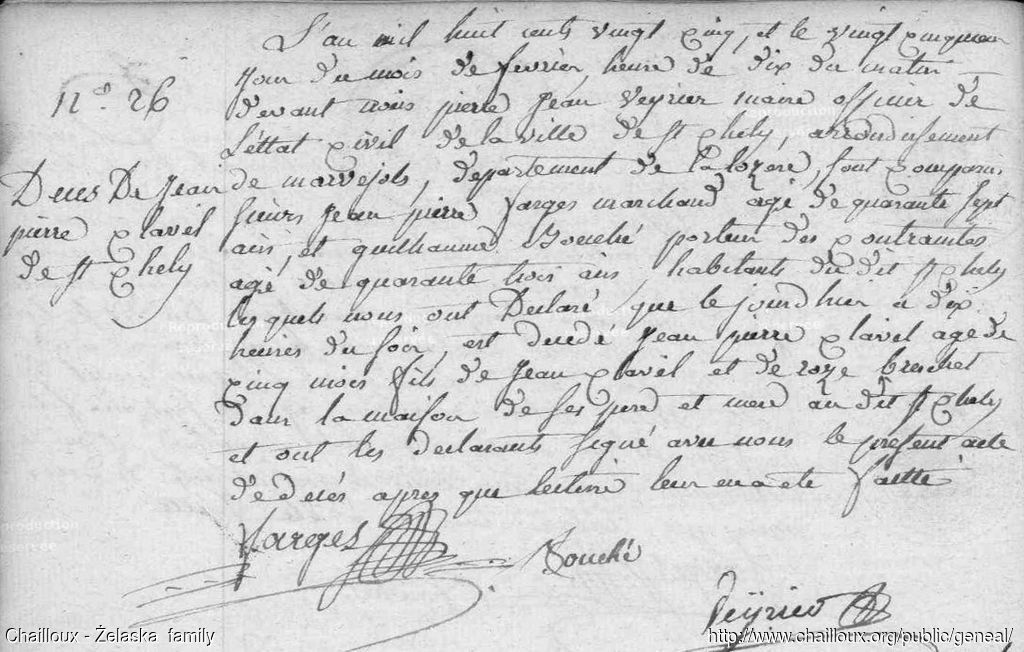 N.o 26
Deces De Jean
pierre clavel
de st Chely
L'an mil huit cents vingt cinq, et le vingt cinquieme
jour du mois de fevrier, heure de dix du matin
devant nous pierre Jean Veyrier maire officier de
L'ettat civil de la ville de st Chely, arrondissement
de marvejols, departement de la lozere, sont comparus
sieurs Jean pierre Farges marchand agé de quarante sept
ans, et guilhaume Bouché porteur des contraintes
agé de quarante trois ans habitants du dit st Chely
lesquels nous ont Declaré que le jourdhier a dix
heures du soir, est decedé Jean pierre clavel age de
cinq mois fils de Jean clavel et de roze breschet
Dans la maison de ses pere et mere au dit st Chely
et ont les declarants signé avec nous le present acte
de decés apres que lecture leur en a eté faitte
Farges
Bouché
Veyrier
Reproduction
Chailloux - Żelaska family
http://www.chailloux.org/public/geneal/